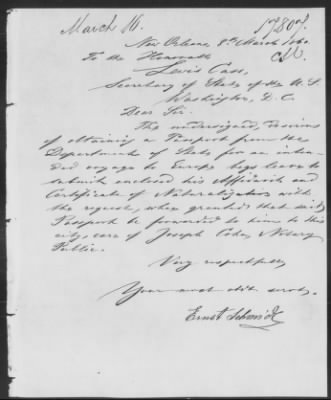 March 16.
17807.
New Orleans 8th March 1860.
To the Honorable
Lewis Cass,
Secretary of State of the U. S.
Washington, D. C.
Dear Sir.
The undersigned, desirous
of obtaining a Passport from the
Department of State for an inten-
ded voyage to Europe begs leave to
submit enclosed his Affidavit and
Certificate of Naturalization with
the request, when granted that said
Passport be forwarded to him to this
city, care of Joseph Cohn, Notary
Public.
Very respectfully
Your most obdt. servt.
Ernst Schmidt